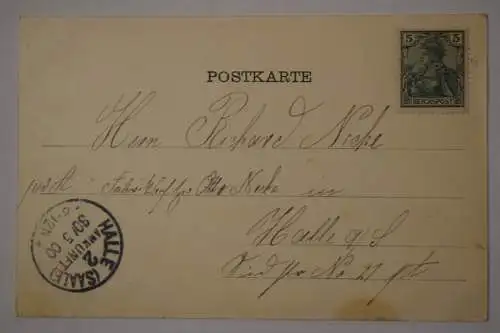 POSTKARTE
5 5
REICHSPOST
Herrn Richard Nicke
Otto Nicke in
Halle a/S
No 21
HALLE (SAALE)
2
ANKUNFT
30/5 00